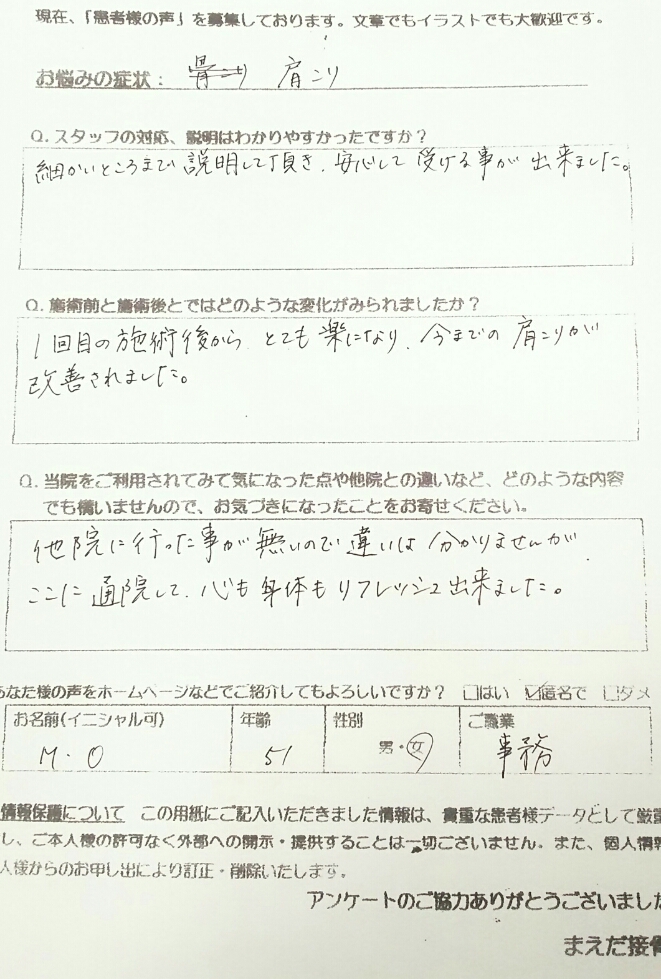 現在、「患者様の声」を募集しております。文章でもイラストでも大歓迎です。
お悩みの症状： 肩こり
Q. スタッフの対応、説明はわかりやすかったですか？
細かいところまで説明して頂き、安心して受ける事が出来ました。
Q. 施術前と施術後とではどのような変化がみられましたか？
1回目の施術後から、とても楽になり、今までの肩こりが
改善されました。
Q. 当院をご利用されてみて気になった点や他院との違いなど、どのような内容
でも構いませんので、お気づきになったことをお寄せください。
他院に行った事が無いので違いは分かりませんが、
ここに通院して、心も身体もリフレッシュ出来ました。
あなた様の声をホームページなどでご紹介してもよろしいですか？ □はい ☑匿名で □ダメ
お名前(イニシャル可) 年齢 性別 ご職業
M・O 51 男・女 事務
情報保護について この用紙にご記入いただきました情報は、貴重な患者様データとして厳重
し、ご本人様の許可なく外部への開示・提供することは一切ございません。また、個人情報
人様からのお申し出により訂正・削除いたします。
アンケートのご協力ありがとうございました
まえだ接骨